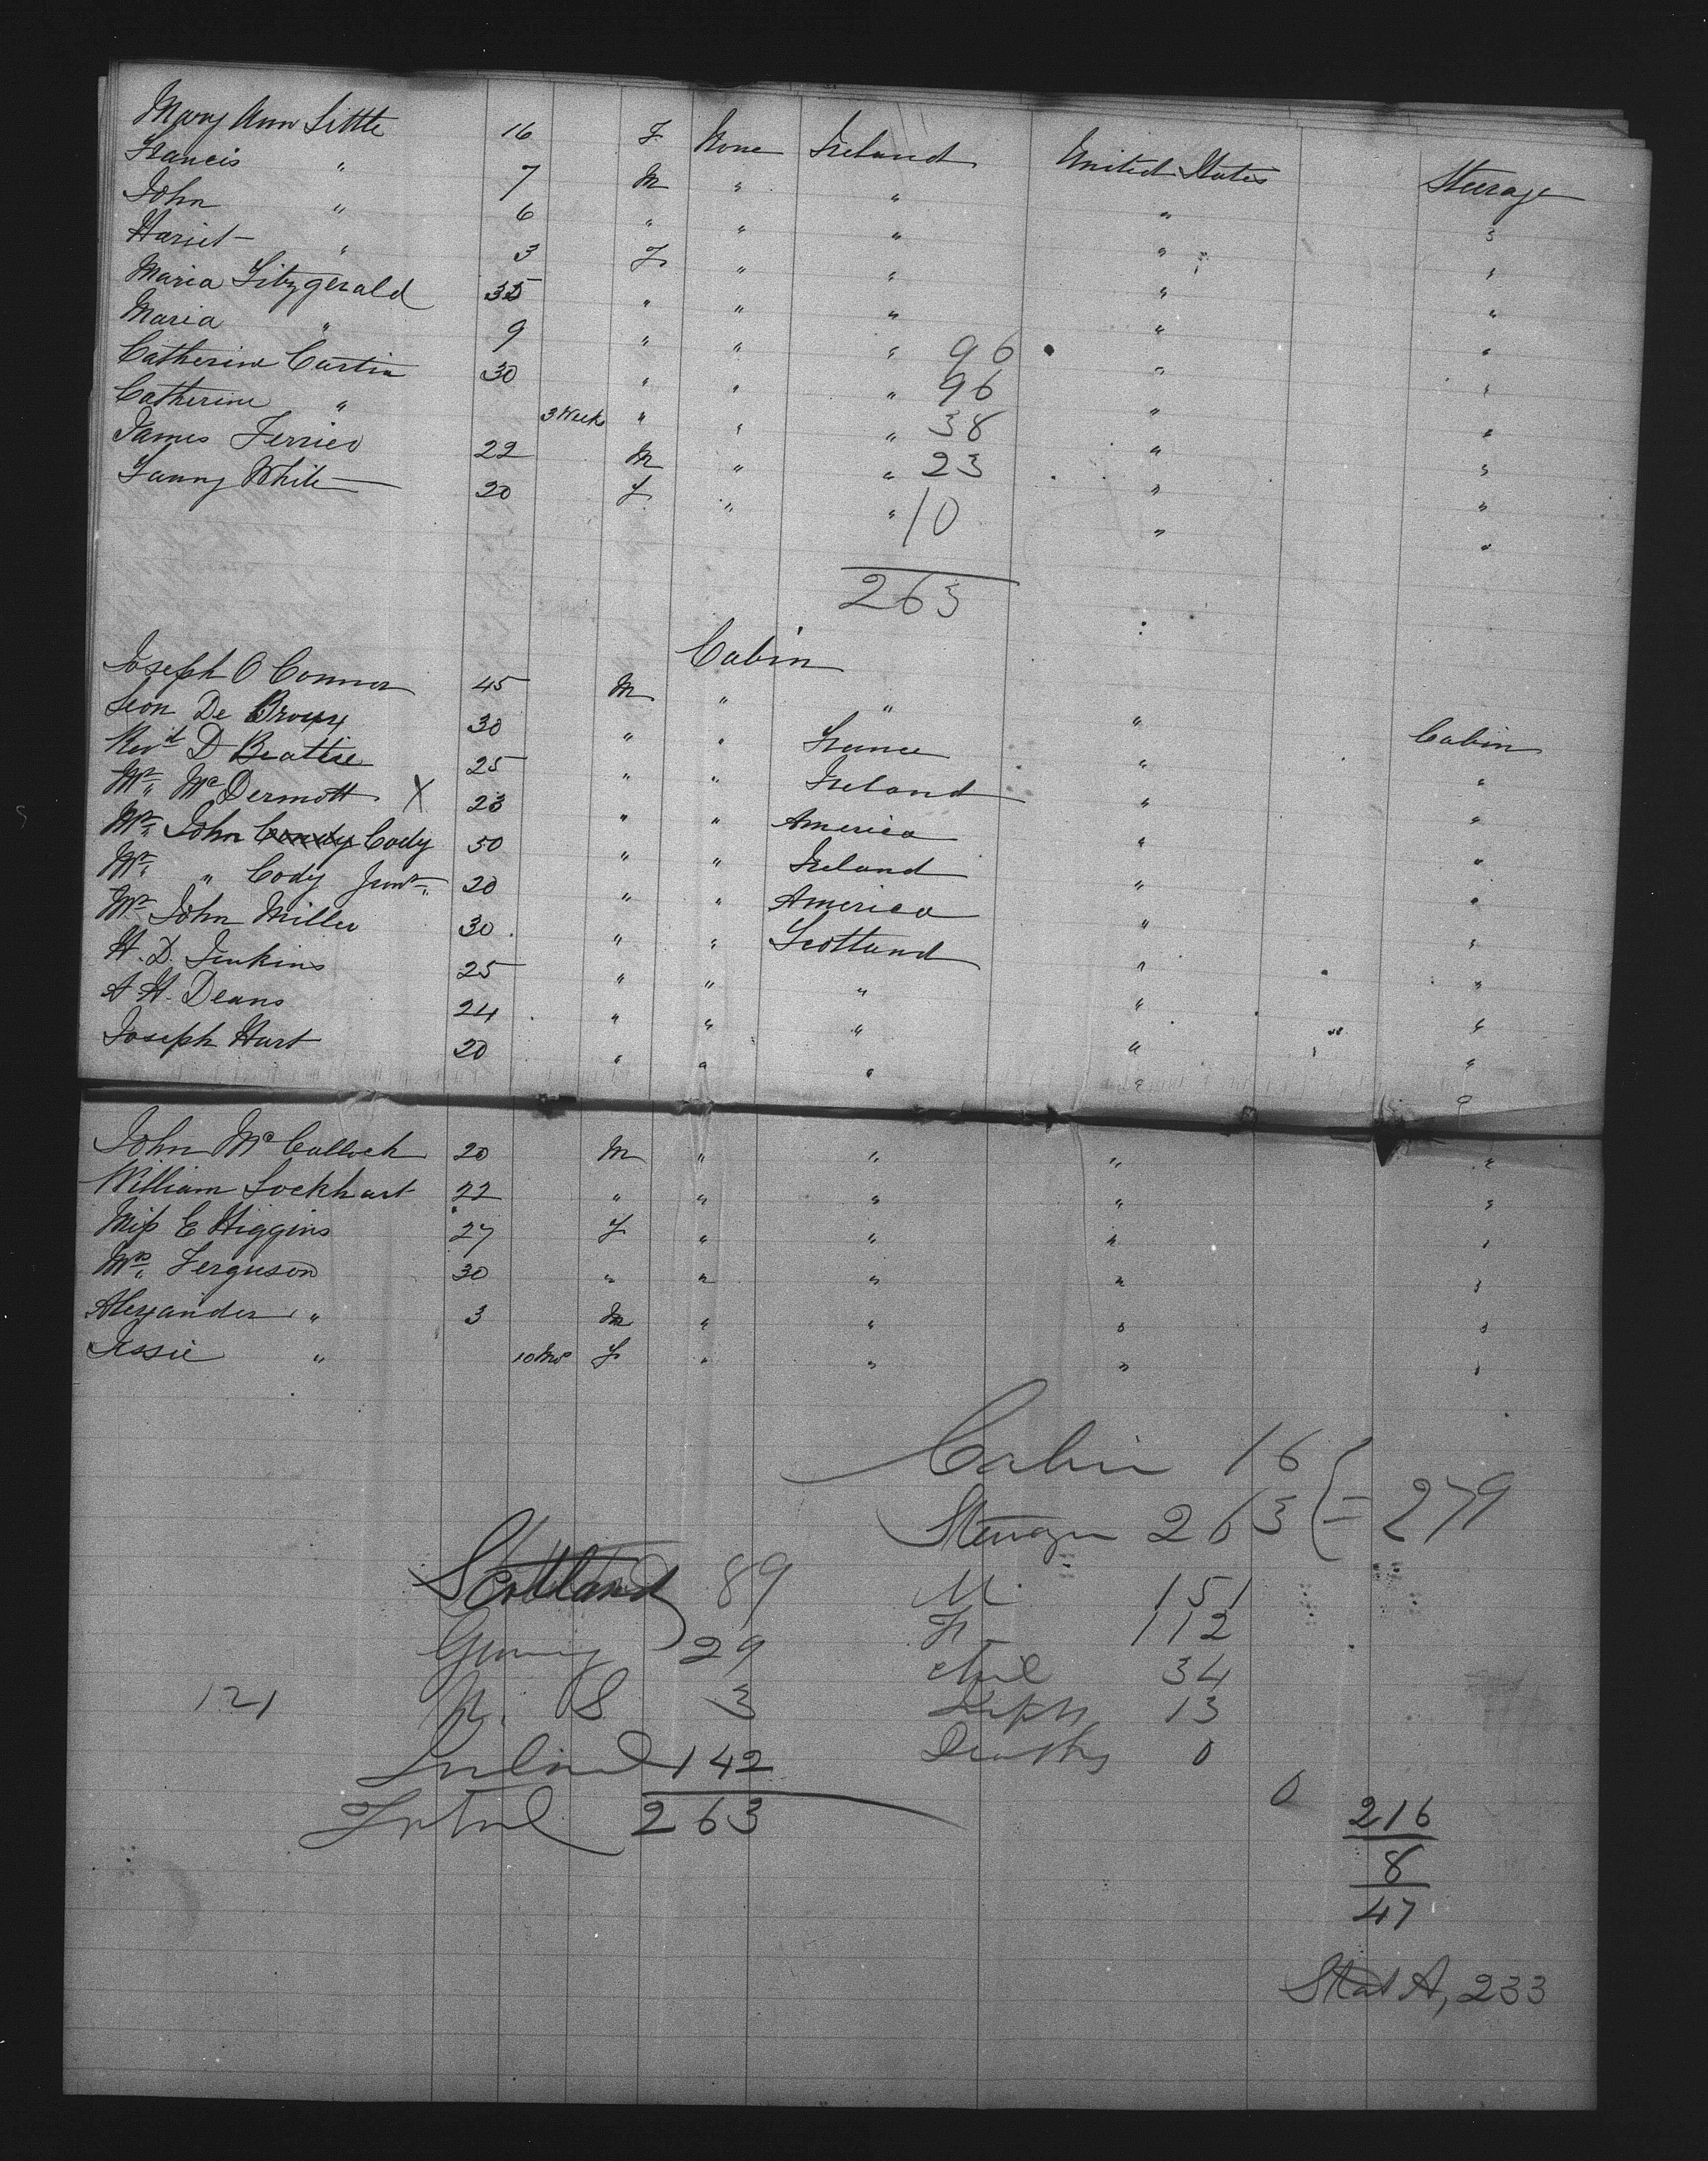 Mary Ann Little 16 F None Ireland United States Steerage
Francis " 7 M " " " "
John " 6 " " " " "
Harriet " 3 F " " " "
Maria Fitzgerald 35 " " " " "
Maria " 9 " " " 96 " "
Catherine Curtin 30 " " " 96 " "
Catherine " 3 Weeks " " " 38 " "
James Ferrier 22 M " " 23 " "
Fanny White 20 F " " 10 " "
263
Cabin
Joseph O Connor 45 M " " " Cabin
Leon De Broux 30 " " France " "
Revd D Beattie 25 " " Ireland " "
Mr. McDermott X 23 " " America " "
Mr. John Cody 50 " " Ireland " "
Mr. " Cody Junr. 20 " " America " "
Mr John Miller 30 " " Scotland " "
H. D. Jenkins 25 " " " " "
A H. Deans 24 " " " " "
Joseph Hart 20 " " " " "
John McCulloch 20 M " " " "
William Lockhart 22 " " " " "
Miss E Higgins 27 F " " " "
Mrs. Ferguson 30 " " " " "
Alexander " 3 M " " " "
Jessie " 10 Mos F " " " "
Cabin 16
Steerage 263 } = 279
Scotland 89 M 151
Germy 29 F 112
121 U. S 3 34
13
Ireland 142 Deaths 0
Total 263 0
216
8
47
Stat A, 233